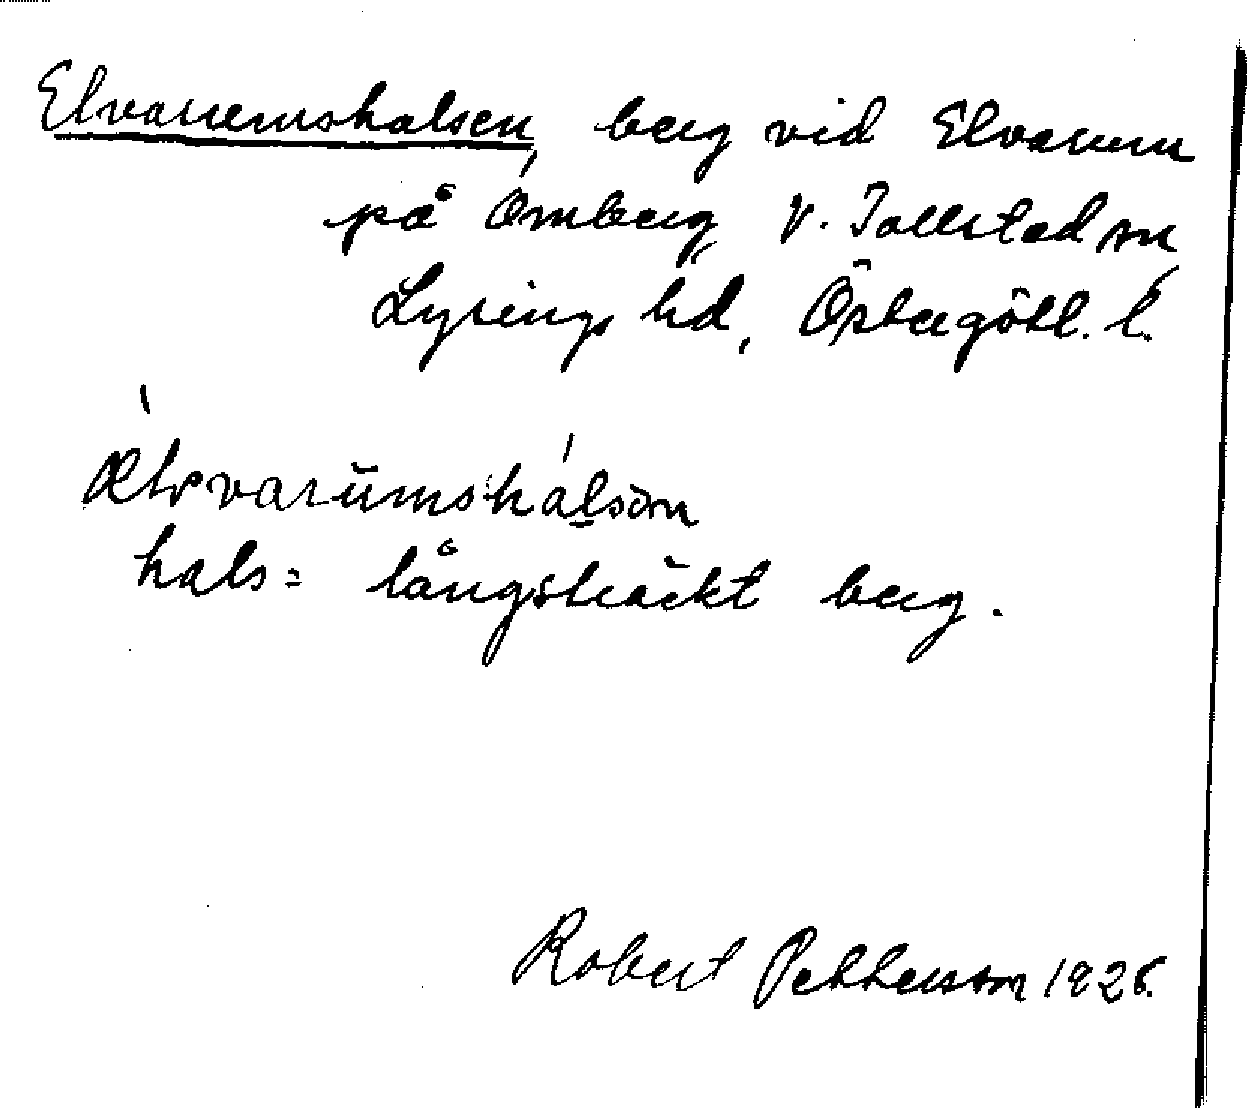 Elvarumshalsen, berg vid Elvarum
på Omberg V. Tollstad sn
Lysings hd, Östergötl. l.
ælvarumshalsən
hals = långsträckt berg.
Robert Pettersson 1926.